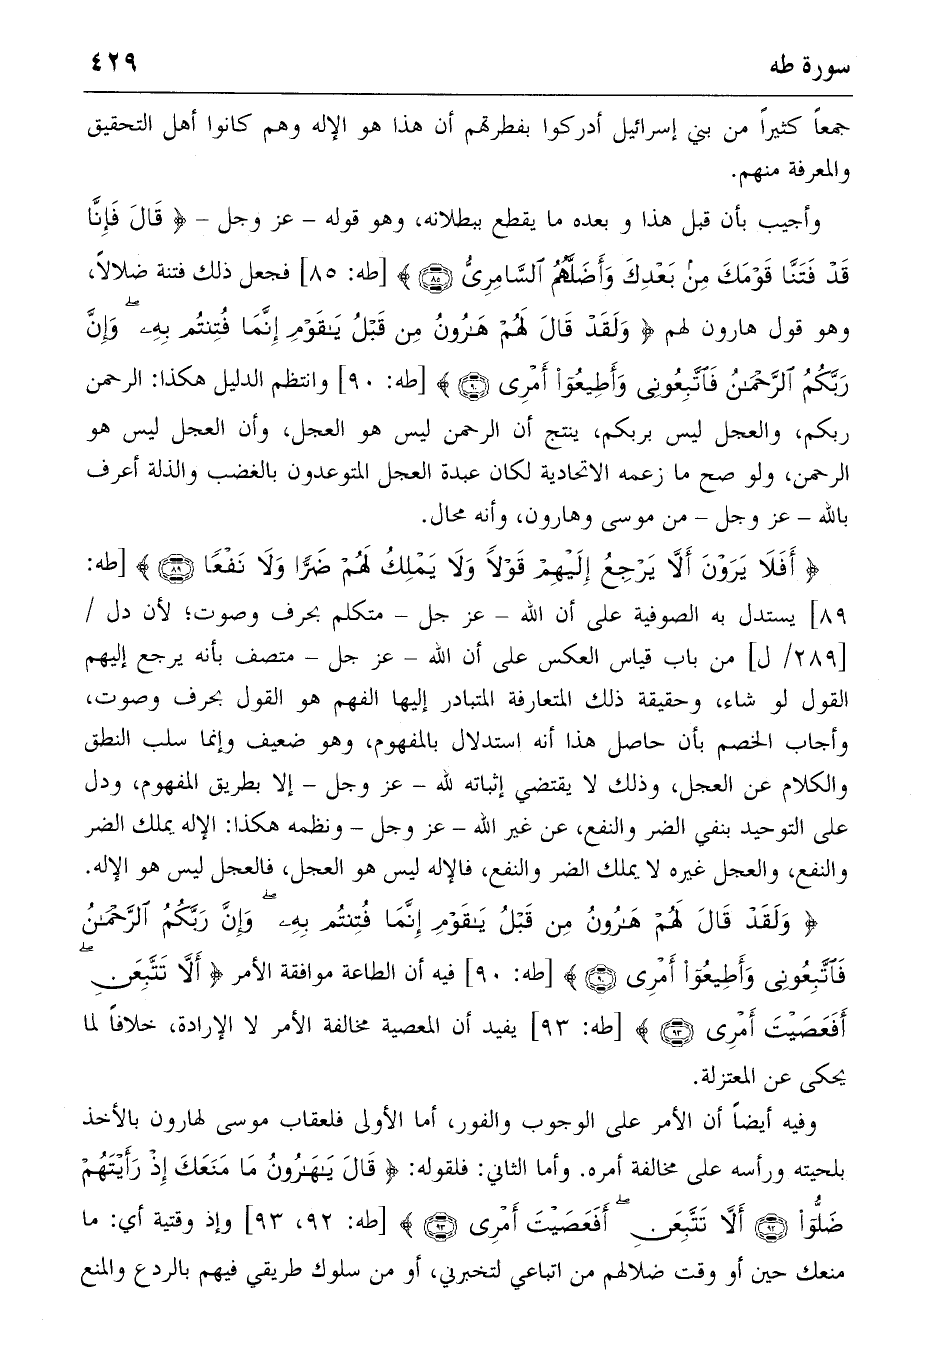 سورة طه ٤٢٩
جمعاً كثيراً من بني إسرائيل أدركوا بفطرتهم أن هذا هو الإله وهم كانوا أهل التحقيق
والمعرفة منهم.
وأجيب بأن قبل هذا و بعده ما يقطع ببطلانه، وهو قوله – عز وجل – ﴿ قَالَ فَإِنَّا
قَدْ فَتَنَّا قَوْمَكَ مِنۢ بَعْدِكَ وَأَضَلَّهُمُ ٱلسَّامِرِىُّ ۝٨٥ ﴾ [طه: ٨٥] فجعل ذلك فتنة ضلالاً،
وهو قول هارون لهم ﴿ وَلَقَدْ قَالَ لَهُمْ هَـٰرُونُ مِن قَبْلُ يَـٰقَوْمِ إِنَّمَا فُتِنتُم بِهِۦ ۖ وَإِنَّ
رَبَّكُمُ ٱلرَّحْمَـٰنُ فَٱتَّبِعُونِى وَأَطِيعُوٓا۟ أَمْرِى ۝٩٠ ﴾ [طه: ٩٠] وانتظم الدليل هكذا: الرحمن
ربكم، والعجل ليس بربكم، ينتج أن الرحمن ليس هو العجل، وأن العجل ليس هو
الرحمن، ولو صح ما زعمه الاتحادية لكان عبدة العجل المتوعدون بالغضب والذلة أعرف
بالله – عز وجل – من موسى وهارون، وأنه محال.
﴿ أَفَلَا يَرَوْنَ أَلَّا يَرْجِعُ إِلَيْهِمْ قَوْلًا وَلَا يَمْلِكُ لَهُمْ ضَرًّا وَلَا نَفْعًا ۝٨٩ ﴾ [طه:
٨٩] يستدل به الصوفية على أن الله – عز جل – متكلم بحرف وصوت؛ لأن دل /
[٢٨٩/ ل] من باب قياس العكس على أن الله – عز جل – متصف بأنه يرجع إليهم
القول لو شاء، وحقيقة ذلك المتعارفة المتبادر إليها الفهم هو القول بحرف وصوت،
وأجاب الخصم بأن حاصل هذا أنه استدلال بالمفهوم، وهو ضعيف وإنما سلب النطق
والكلام عن العجل، وذلك لا يقتضي إثباته لله – عز وجل – إلا بطريق المفهوم، ودل
على التوحيد بنفي الضر والنفع، عن غير الله – عز وجل – ونظمه هكذا: الإله يملك الضر
والنفع، والعجل غيره لا يملك الضر والنفع، فالإله ليس هو العجل، فالعجل ليس هو الإله.
﴿ وَلَقَدْ قَالَ لَهُمْ هَـٰرُونُ مِن قَبْلُ يَـٰقَوْمِ إِنَّمَا فُتِنتُم بِهِۦ ۖ وَإِنَّ رَبَّكُمُ ٱلرَّحْمَـٰنُ
فَٱتَّبِعُونِى وَأَطِيعُوٓا۟ أَمْرِى ۝٩٠ ﴾ [طه: ٩٠] فيه أن الطاعة موافقة الأمر ﴿ أَلَّا تَتَّبِعَنِ ۖ
أَفَعَصَيْتَ أَمْرِى ۝٩٣ ﴾ [طه: ٩٣] يفيد أن المعصية مخالفة الأمر لا الإرادة، خلافاً لما
يحكى عن المعتزلة.
وفيه أيضاً أن الأمر على الوجوب والفور، أما الأولى فلعقاب موسى لهارون بالأخذ
بلحيته ورأسه على مخالفة أمره. وأما الثاني: فلقوله: ﴿ قَالَ يَـٰهَـٰرُونُ مَا مَنَعَكَ إِذْ رَأَيْتَهُمْ
ضَلُّوٓا۟ ۝٩٢ أَلَّا تَتَّبِعَنِ ۖ أَفَعَصَيْتَ أَمْرِى ۝٩٣ ﴾ [طه: ٩٢، ٩٣] وإذ وقتية أي: ما
منعك حين أو وقت ضلالهم من اتباعي لتخبرني، أو من سلوك طريقي فيهم بالردع والمنع